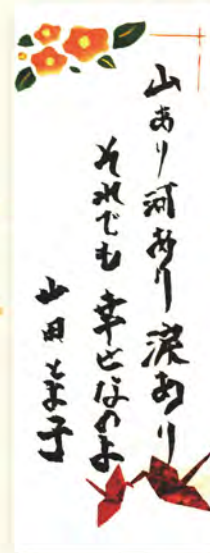 山あり河あり涙あり
それでも幸せなのよ
山田とま子